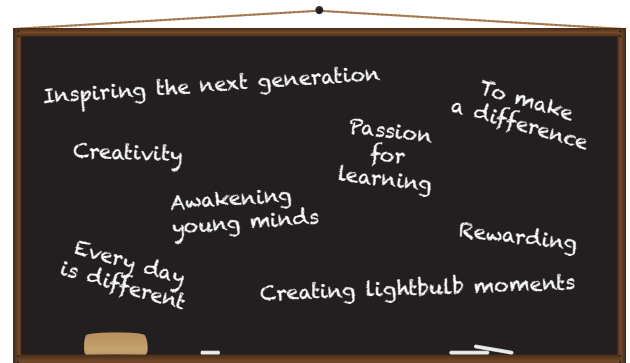 Inspiring the next generation
To make
a difference
Passion
for
learning
Creativity
Awakening
young minds
Rewarding
Every day
is different
Creating lightbulb moments